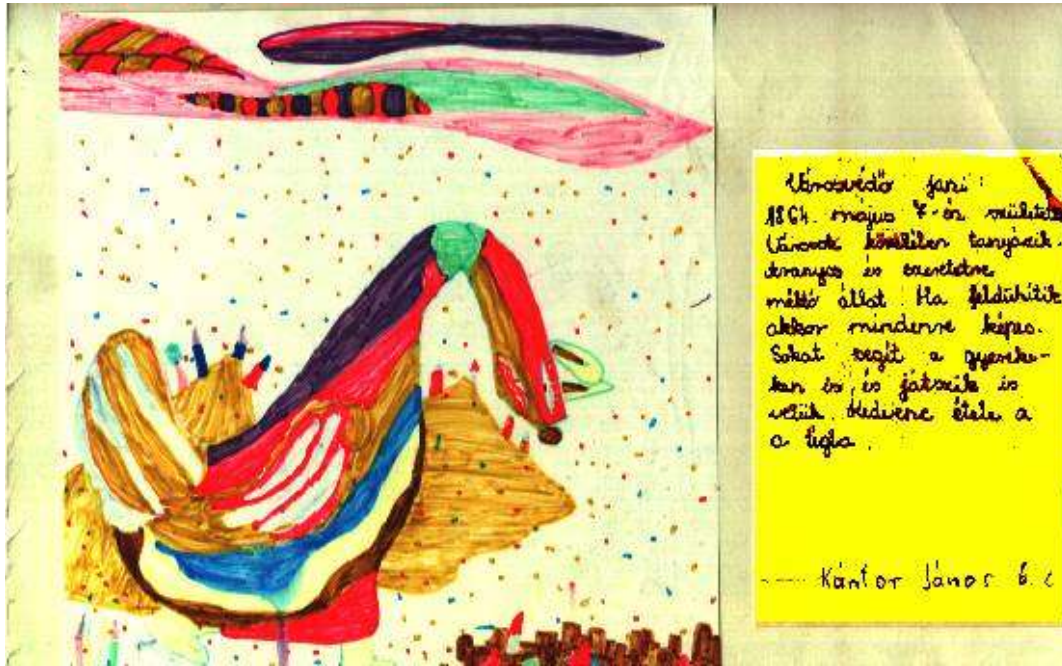 Városvédő Jani:
1864. május 7-én született
Városok közelében tanyázik.
Aranyos és szeretetre
méltó állat. Ha feldühítik
akkor mindenre képes.
Sokat segít a gyereke-
ken is és játszik is
velük. Kedvenc étele a
a tégla.
Kántor János 6. c